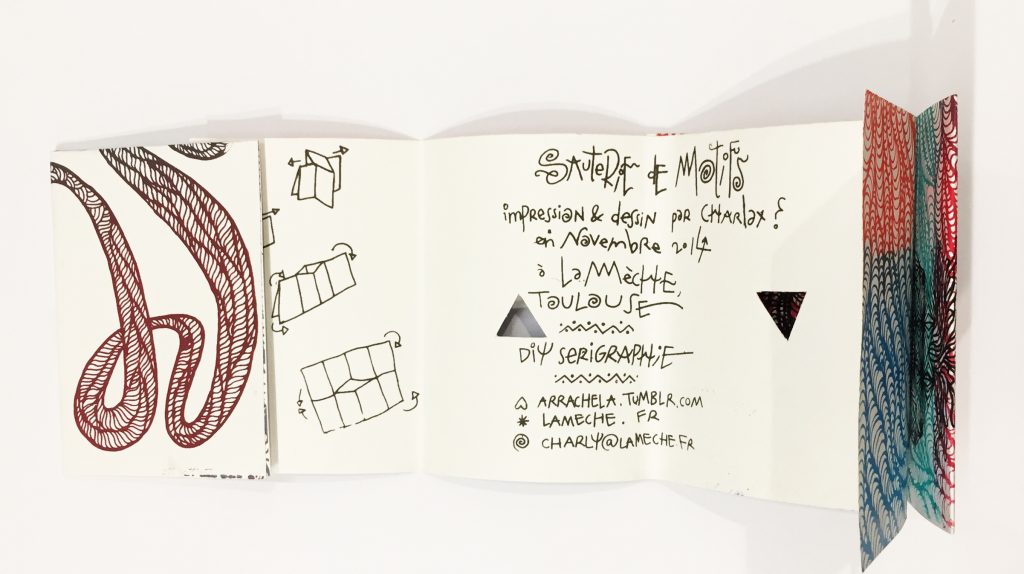 SAUTERIE DE MOTIFS
impression & dessin par CHARLOX ?
en Novembre 2014
à LA MÈCHE,
TOULOUSE
DIY SERIGRAPHIE
ARRACHELA.TUMBLR.COM
LAMECHE.FR
CHARLY@LAMECHE.FR